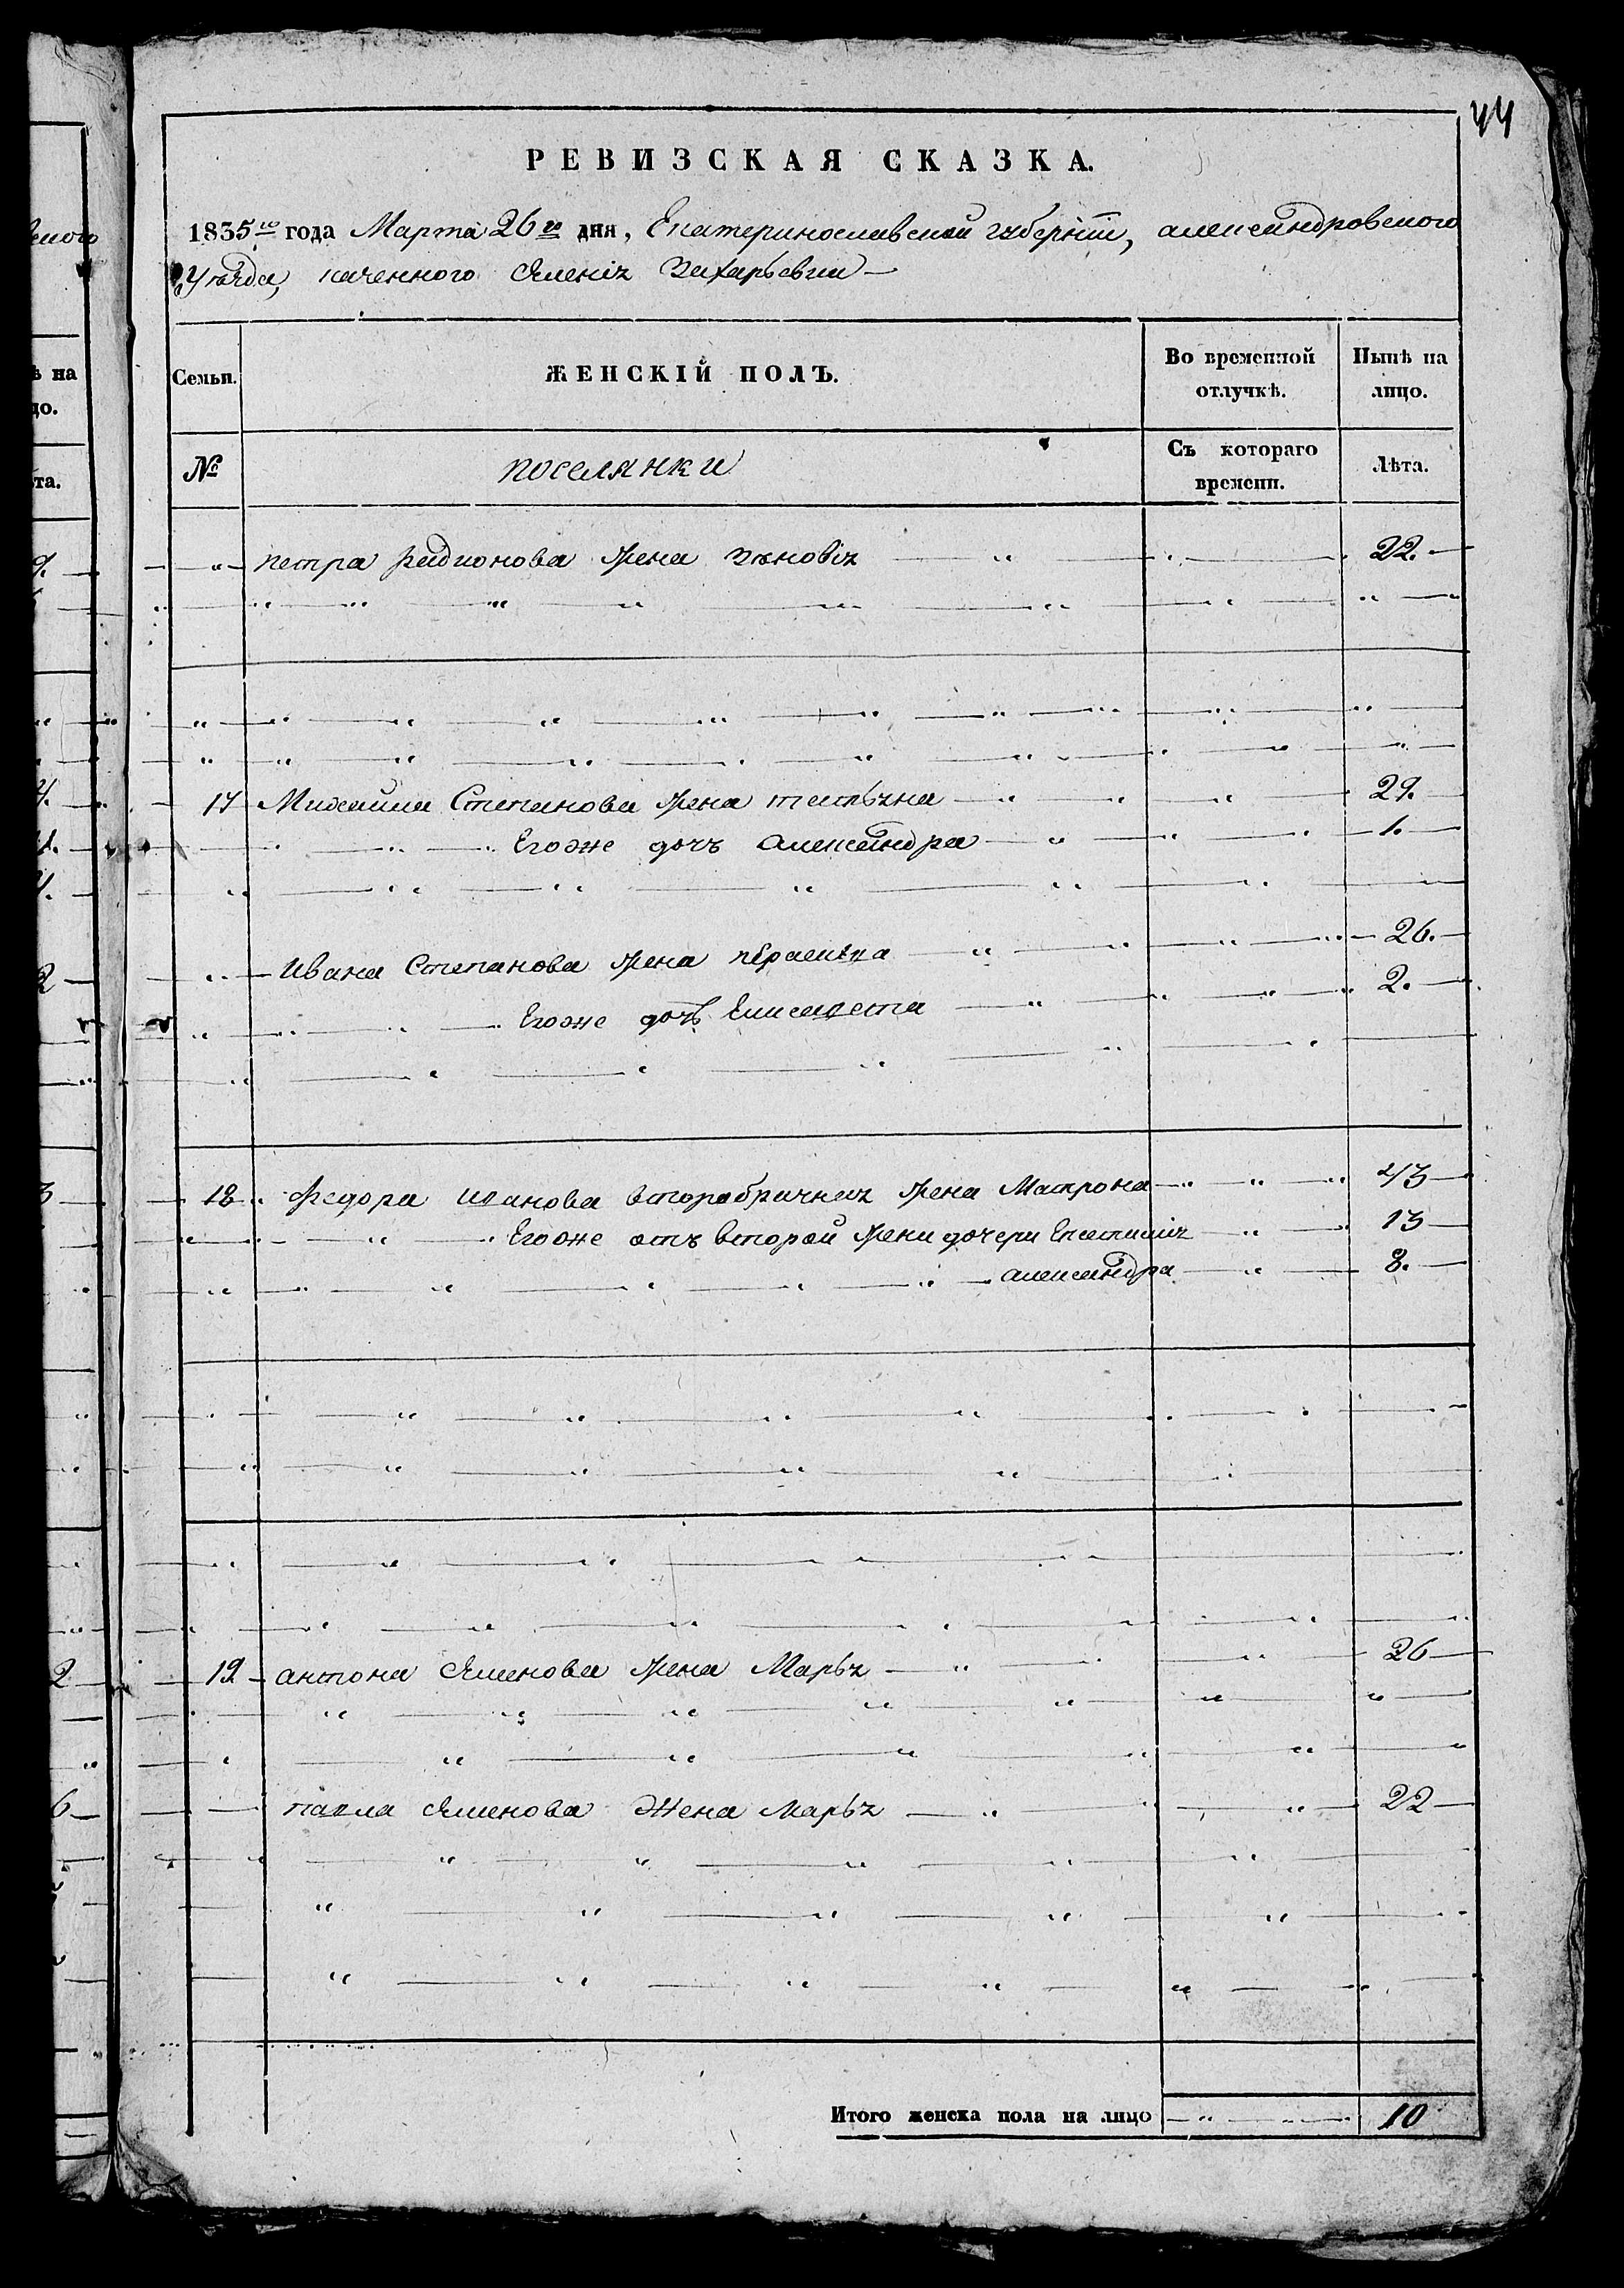 44
РЕВИЗСКАЯ СКАЗКА.
1835го года Марта 26го дня, Екатеринославской губернїи, александровского
Уѣзда, казенного селенія Захарьевки
Семьи. ЖЕНСКІЙ ПОЛЪ. Во временной отлучкѣ. Нынѣ на лицо.
№ поселянки Съ котораго времени. Лѣта.
петра радионова жена Зѣновія 22.
17 Михайла Степанова жена татьяна 29.
Егоже дочъ александра 1.
Ивана Степанова жена параскѣва 26.
Егоже дочъ Елисавета 2.
18 федора иванова вторабрачная жена Матрона 43
Егоже отъ второй жени дочери Евстинія 13
александра 8.
19 антона семенова жена Марья 26
павла семенова жена марья 22
Итого женска пола на лицо 10